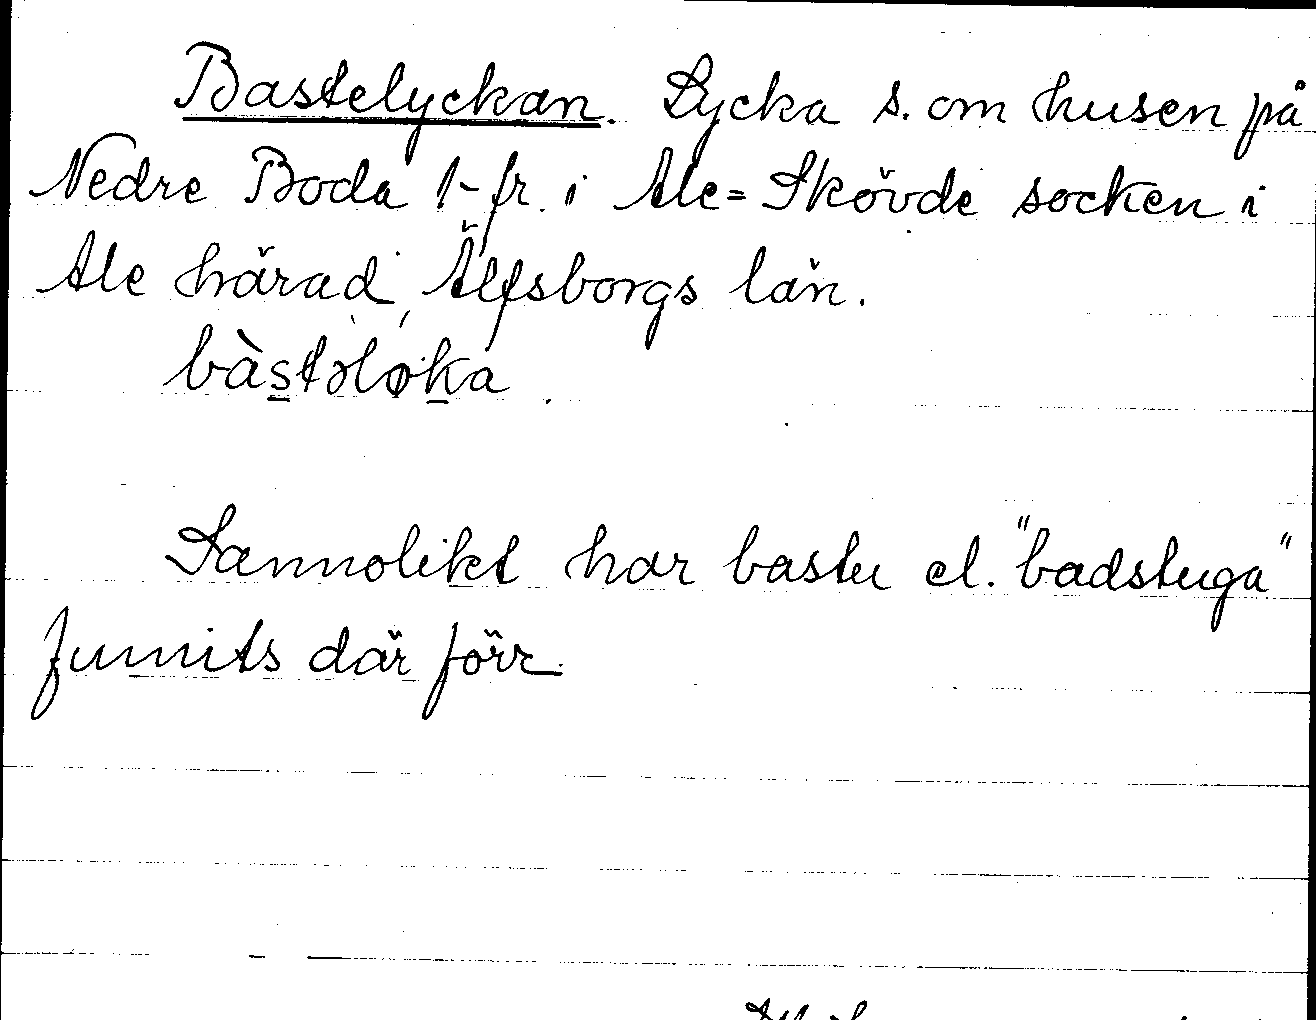 Bastelyckan. Lycka s. om husen på
Nedre Boda 1- fr. i Ale=Skövde socken i
Ale härad, Älfsborgs län.
bàstəløka
Sannolikt har bastu el. "badstuga"
funnits där förr